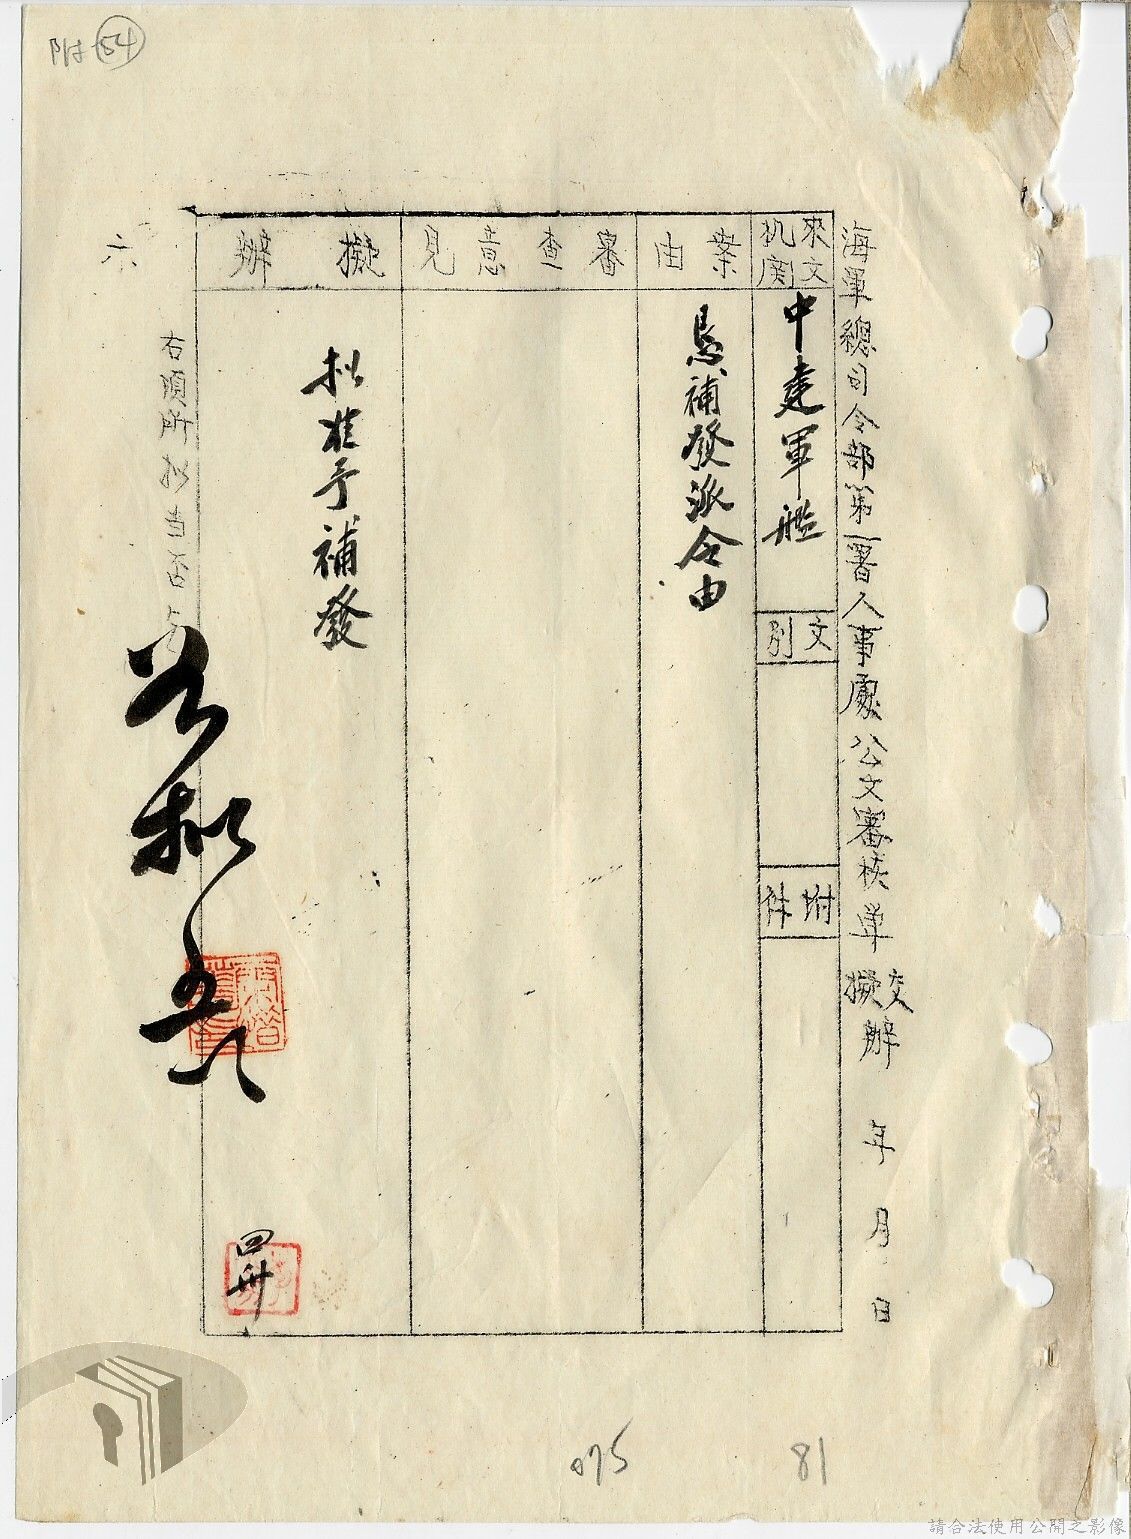 附54
海軍總司令部第一署人事處公文審核單 交擬辦 年 月 日
來文机関
中建軍艦
文別
附件
案由
懇補發派令由
審查意見
擬辦
拟准予補發
四 卅
右項所拟当否
如拟
六
075
81
請合法使用公開之影像